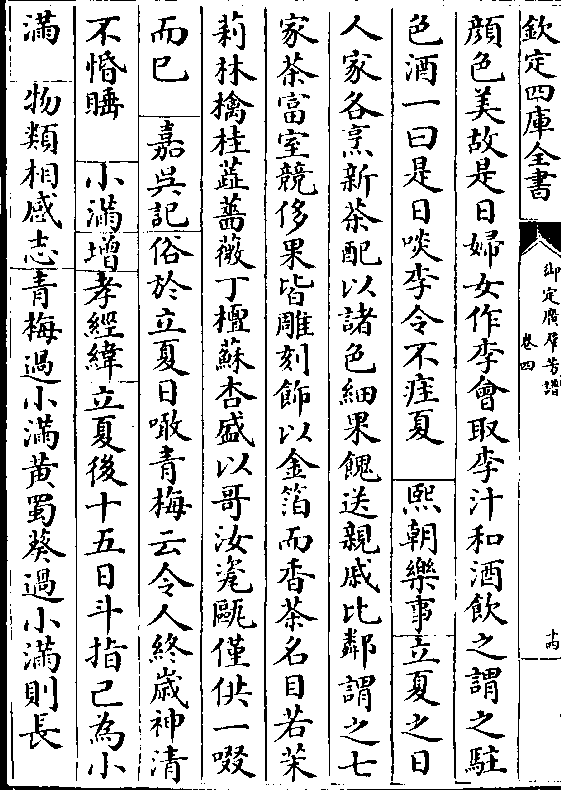 欽定四庫全書
御定廣羣芳譜
卷四
十四
顔色美故是日婦女作李會取李汁和酒飲之謂之駐
色酒一曰是日啖李令不疰夏 熙朝樂事立夏之日
人家各烹新茶配以諸色細果餽送親戚比鄰謂之七
家茶富室競侈果皆雕刻飾以金箔而香茶名目若茉
莉林檎桂蕊薔薇丁檀蘇杏盛以哥汝瓷甌僅供一啜
而已 嘉吳記俗於立夏日噉青梅云令人終歲神清
不惛睡 小滿增孝經緯立夏後十五日斗指巳為小
滿 物類相感志青梅過小滿黄蜀葵過小滿則長